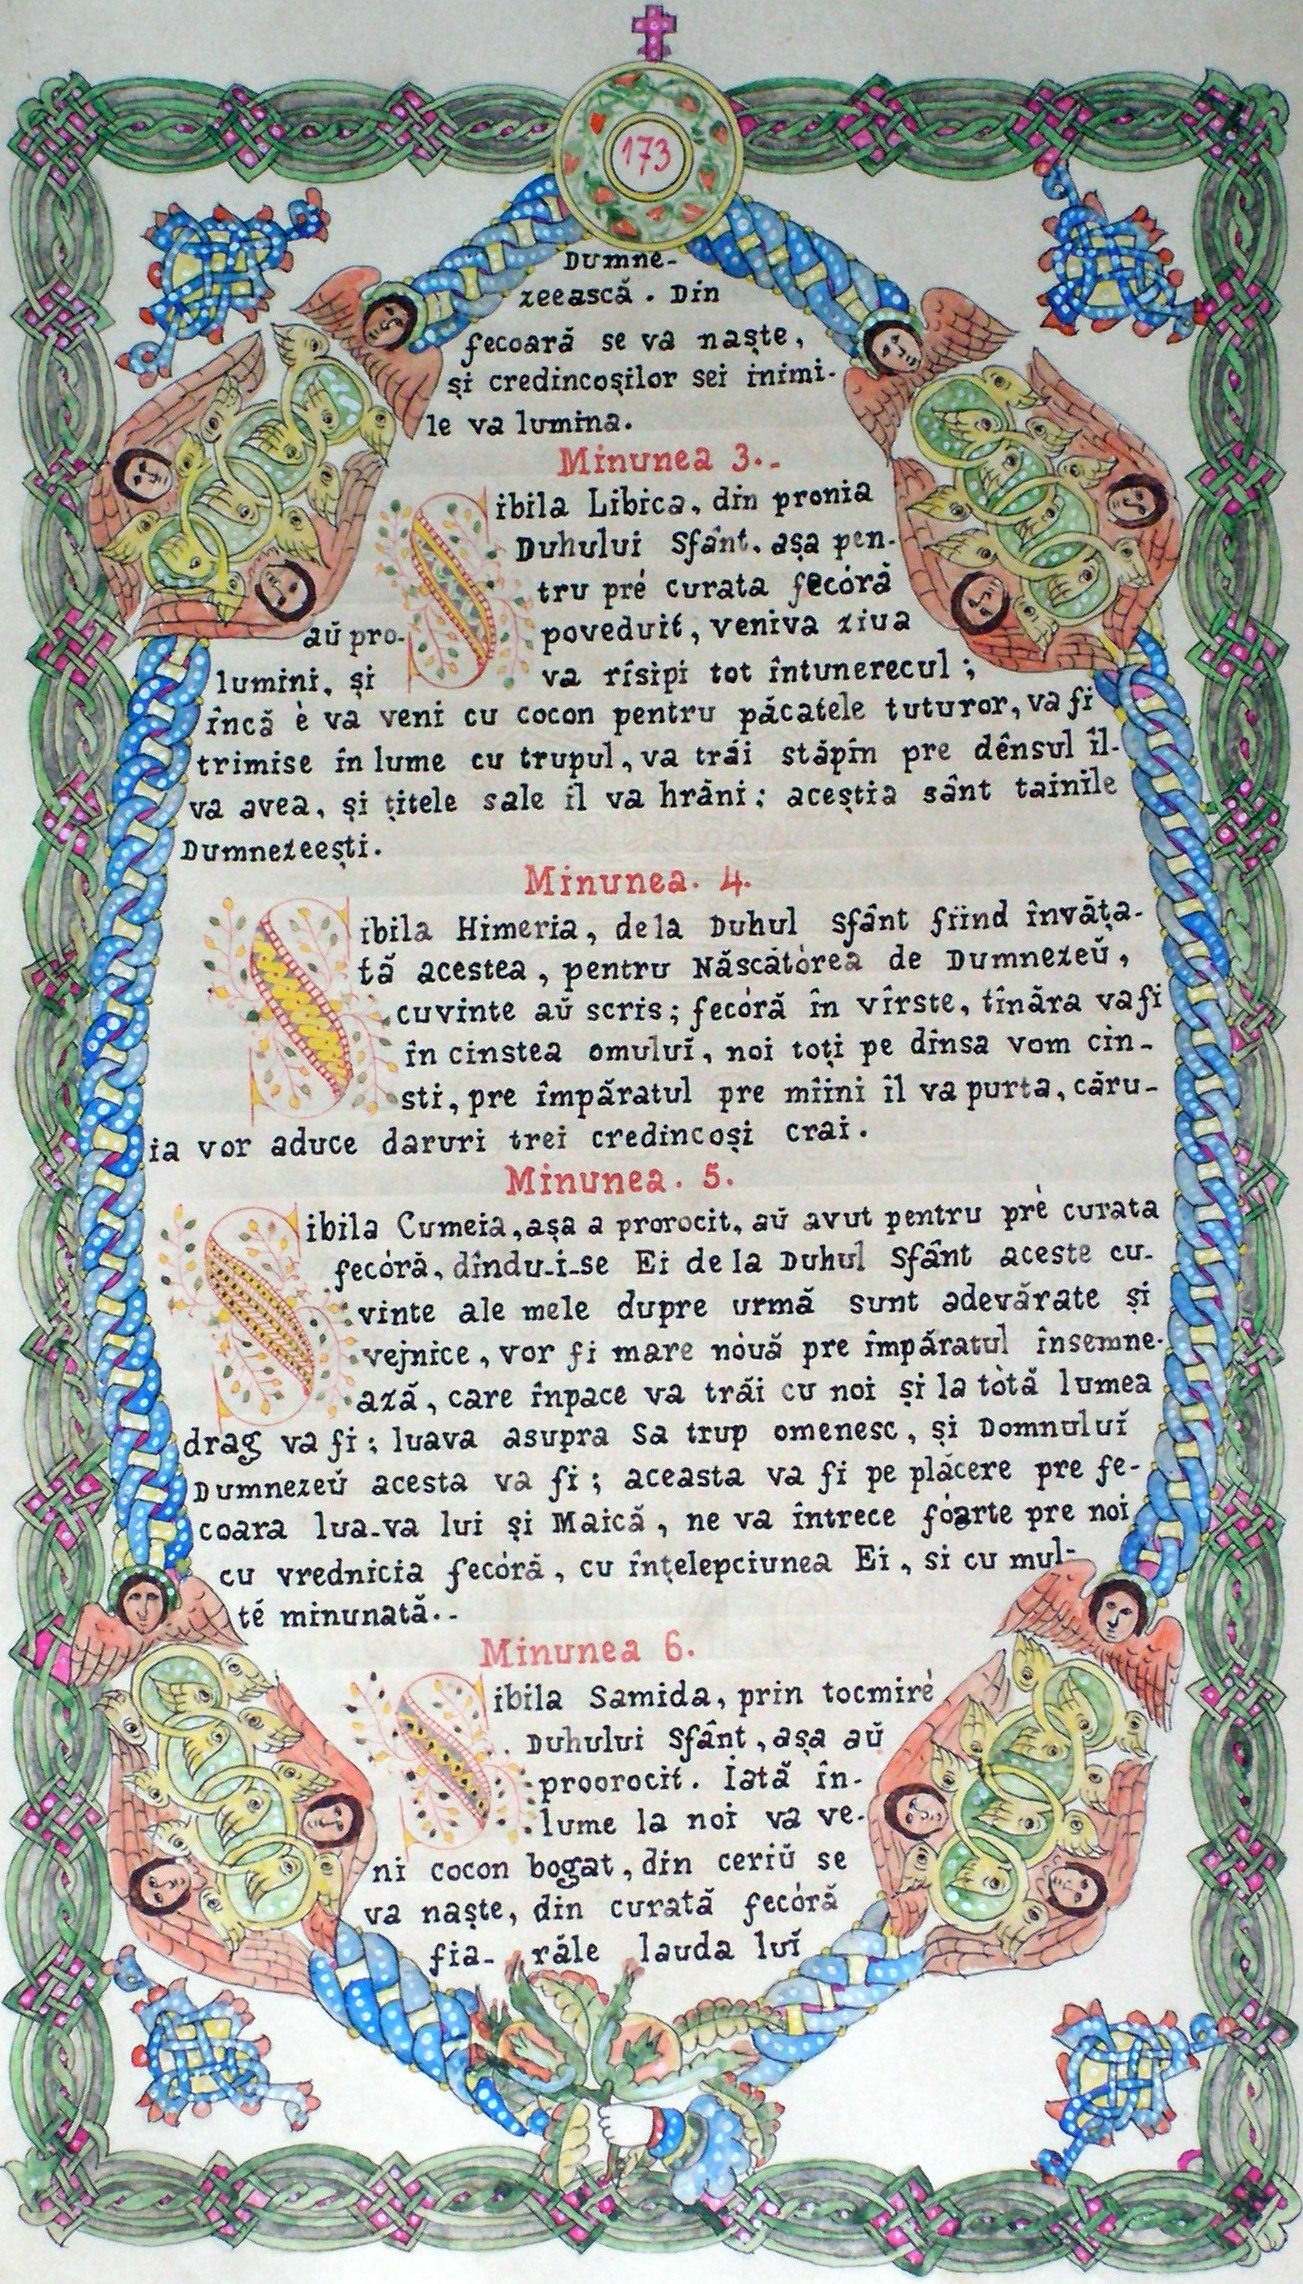 173
Dumne-
zeească. Din
fecoară se va naște,
și credincoșilor sei inimi-
le va lumina.
Minunea 3.-
Sibila Libica, din pronia
Duhului Sfânt. așa pen-
tru pré curata fecóră
aŭ pro-poveduit, veniva ziua
lumini, și va rísipi tot întunerecul;
încă è va veni cu cocon pentru păcatele tuturor, va fi
trimise în lume cu trupul, va trăi stăpîn pre dênsul îl-
va avea, și țitele sale îl va hrăni; aceștia sânt tainile
Dumnezeești.
Minunea. 4.
Sibila Himeria, dela Duhul Sfânt fiind învăța-
tă acestea, pentru Născătórea de Dumnezeŭ,
cuvinte aŭ scris; fecóră în vîrste, tînăra va fi
în cinstea omuluĭ, noi toți pe dînsa vom cin-
sti, pre împăratul pre mîini îl va purta, căru-
ia vor aduce daruri trei credincoși crai.
Minunea. 5.
Sibila Cumeia, așa a prorocit, aŭ avut pentru pré curata
fecóră, dîndu-i-se Ei de la Duhul Sfânt aceste cu-
vinte ale mele dupre urmă sunt adevărate și
vejnice, vor fi mare nòuă pre împăratul însemne-
ază, care înpace va trăi cu noi și la tòtă lumea
drag va fi; luava asupra Sa trup omenesc, și Domnuluĭ
Dumnezeŭ acesta va fi; aceasta va fi pe plăcere pre fe-
coara lua-va lui și Maică, ne va întrece fóarte pre noi
cu vrednicia fecóră, cu înțelepciunea Ei, si cu mul-
té minunată..-
Minunea 6.
Sibila Samida, prin tocmiré
Duhului Sfânt, așa aŭ
proorocit. Iată în-
lume la noi va ve-
ni cocon bogat, din ceriŭ se
va naște, din curată fecóră
fia-răle lauda luĭ